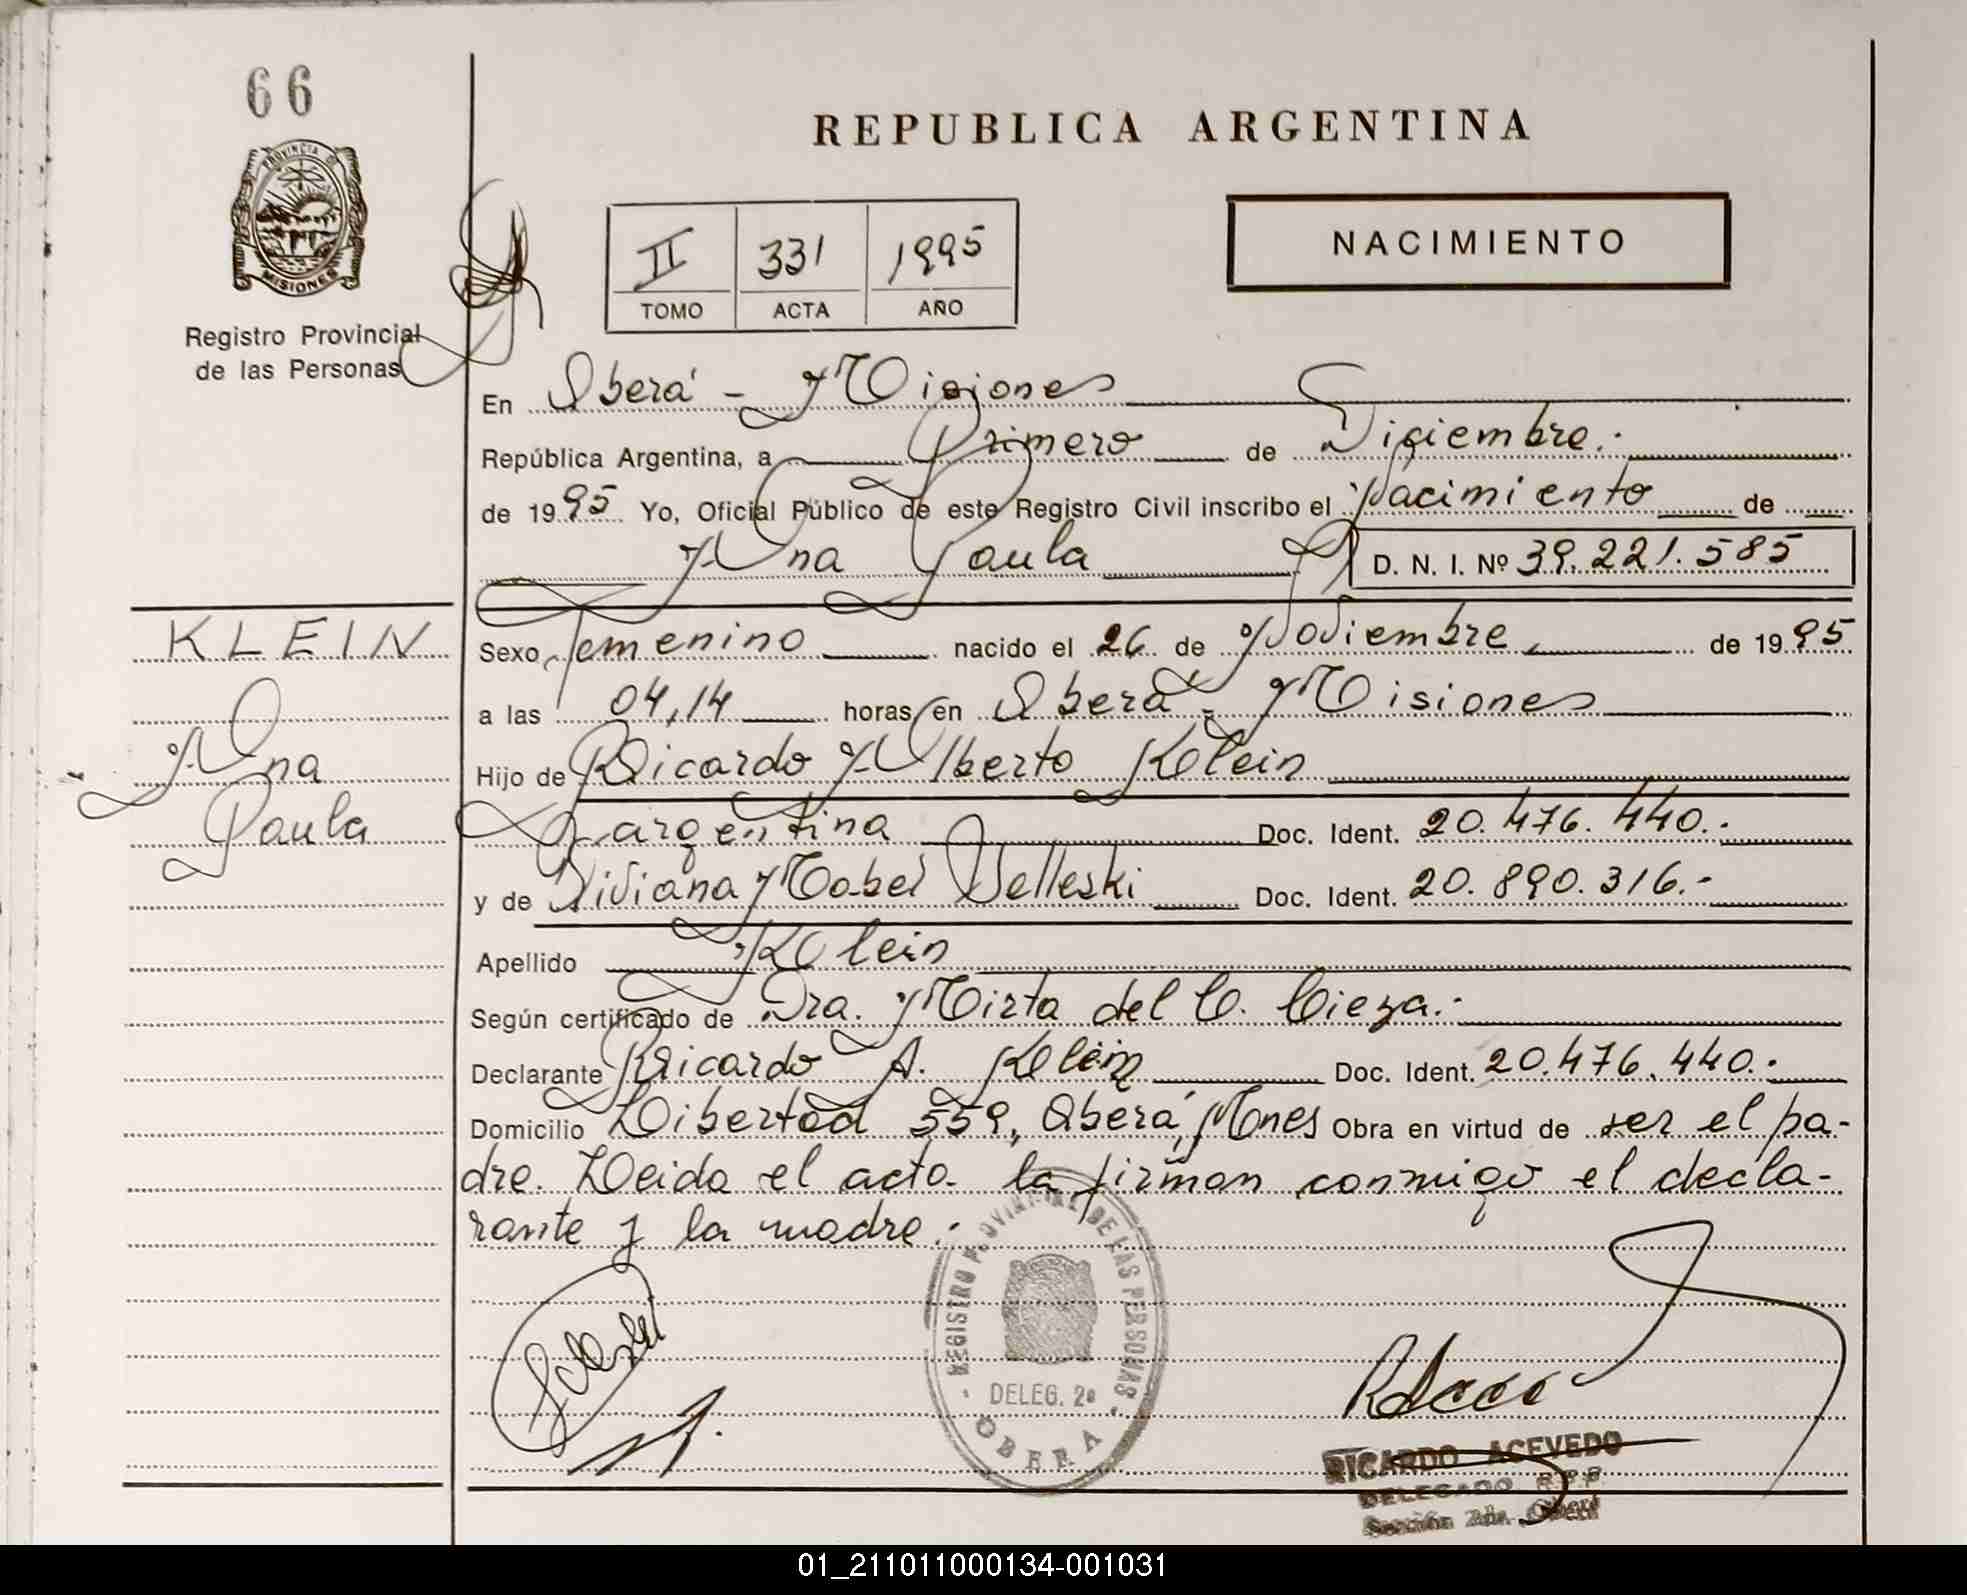 66
PROVINCIA DE
MISIONES
Registro Provincial
de las Personas
REPUBLICA ARGENTINA
II 331 1995
TOMO ACTA AÑO
NACIMIENTO
En Oberá - Misiones
República Argentina, a Primero de Diciembre.-
de 1995 Yo, Oficial Público de este Registro Civil inscribo el Nacimiento de
Ana Paula D. N. I. Nº 39.221.585
KLEIN
Ana
Paula
Sexo Femenino nacido el 26 de Noviembre de 1995
a las 04,14 horas en Oberá - Misiones
Hijo de Ricardo Alberto Klein
argentina Doc. Ident. 20.476.440.-
y de Viviana Mabel Velleski Doc. Ident. 20.890.316.-
Apellido Klein
Según certificado de Dra. Mirta del C. Cieza.-
Declarante Ricardo A. Klein Doc. Ident. 20.476.440.-
Domicilio Libertad 559, Oberá, Mnes Obra en virtud de ser el pa-
dre. Leida el acta la firman conmigo el decla-
rante y la madre.-
REGISTRO PROVINCIAL DE LAS PERSONAS
DELEG. 2ª
OBERA
RICARDO ACEVEDO
DELEGADO R.P.P.
Sección 2da. Oberá
01_211011000134-001031